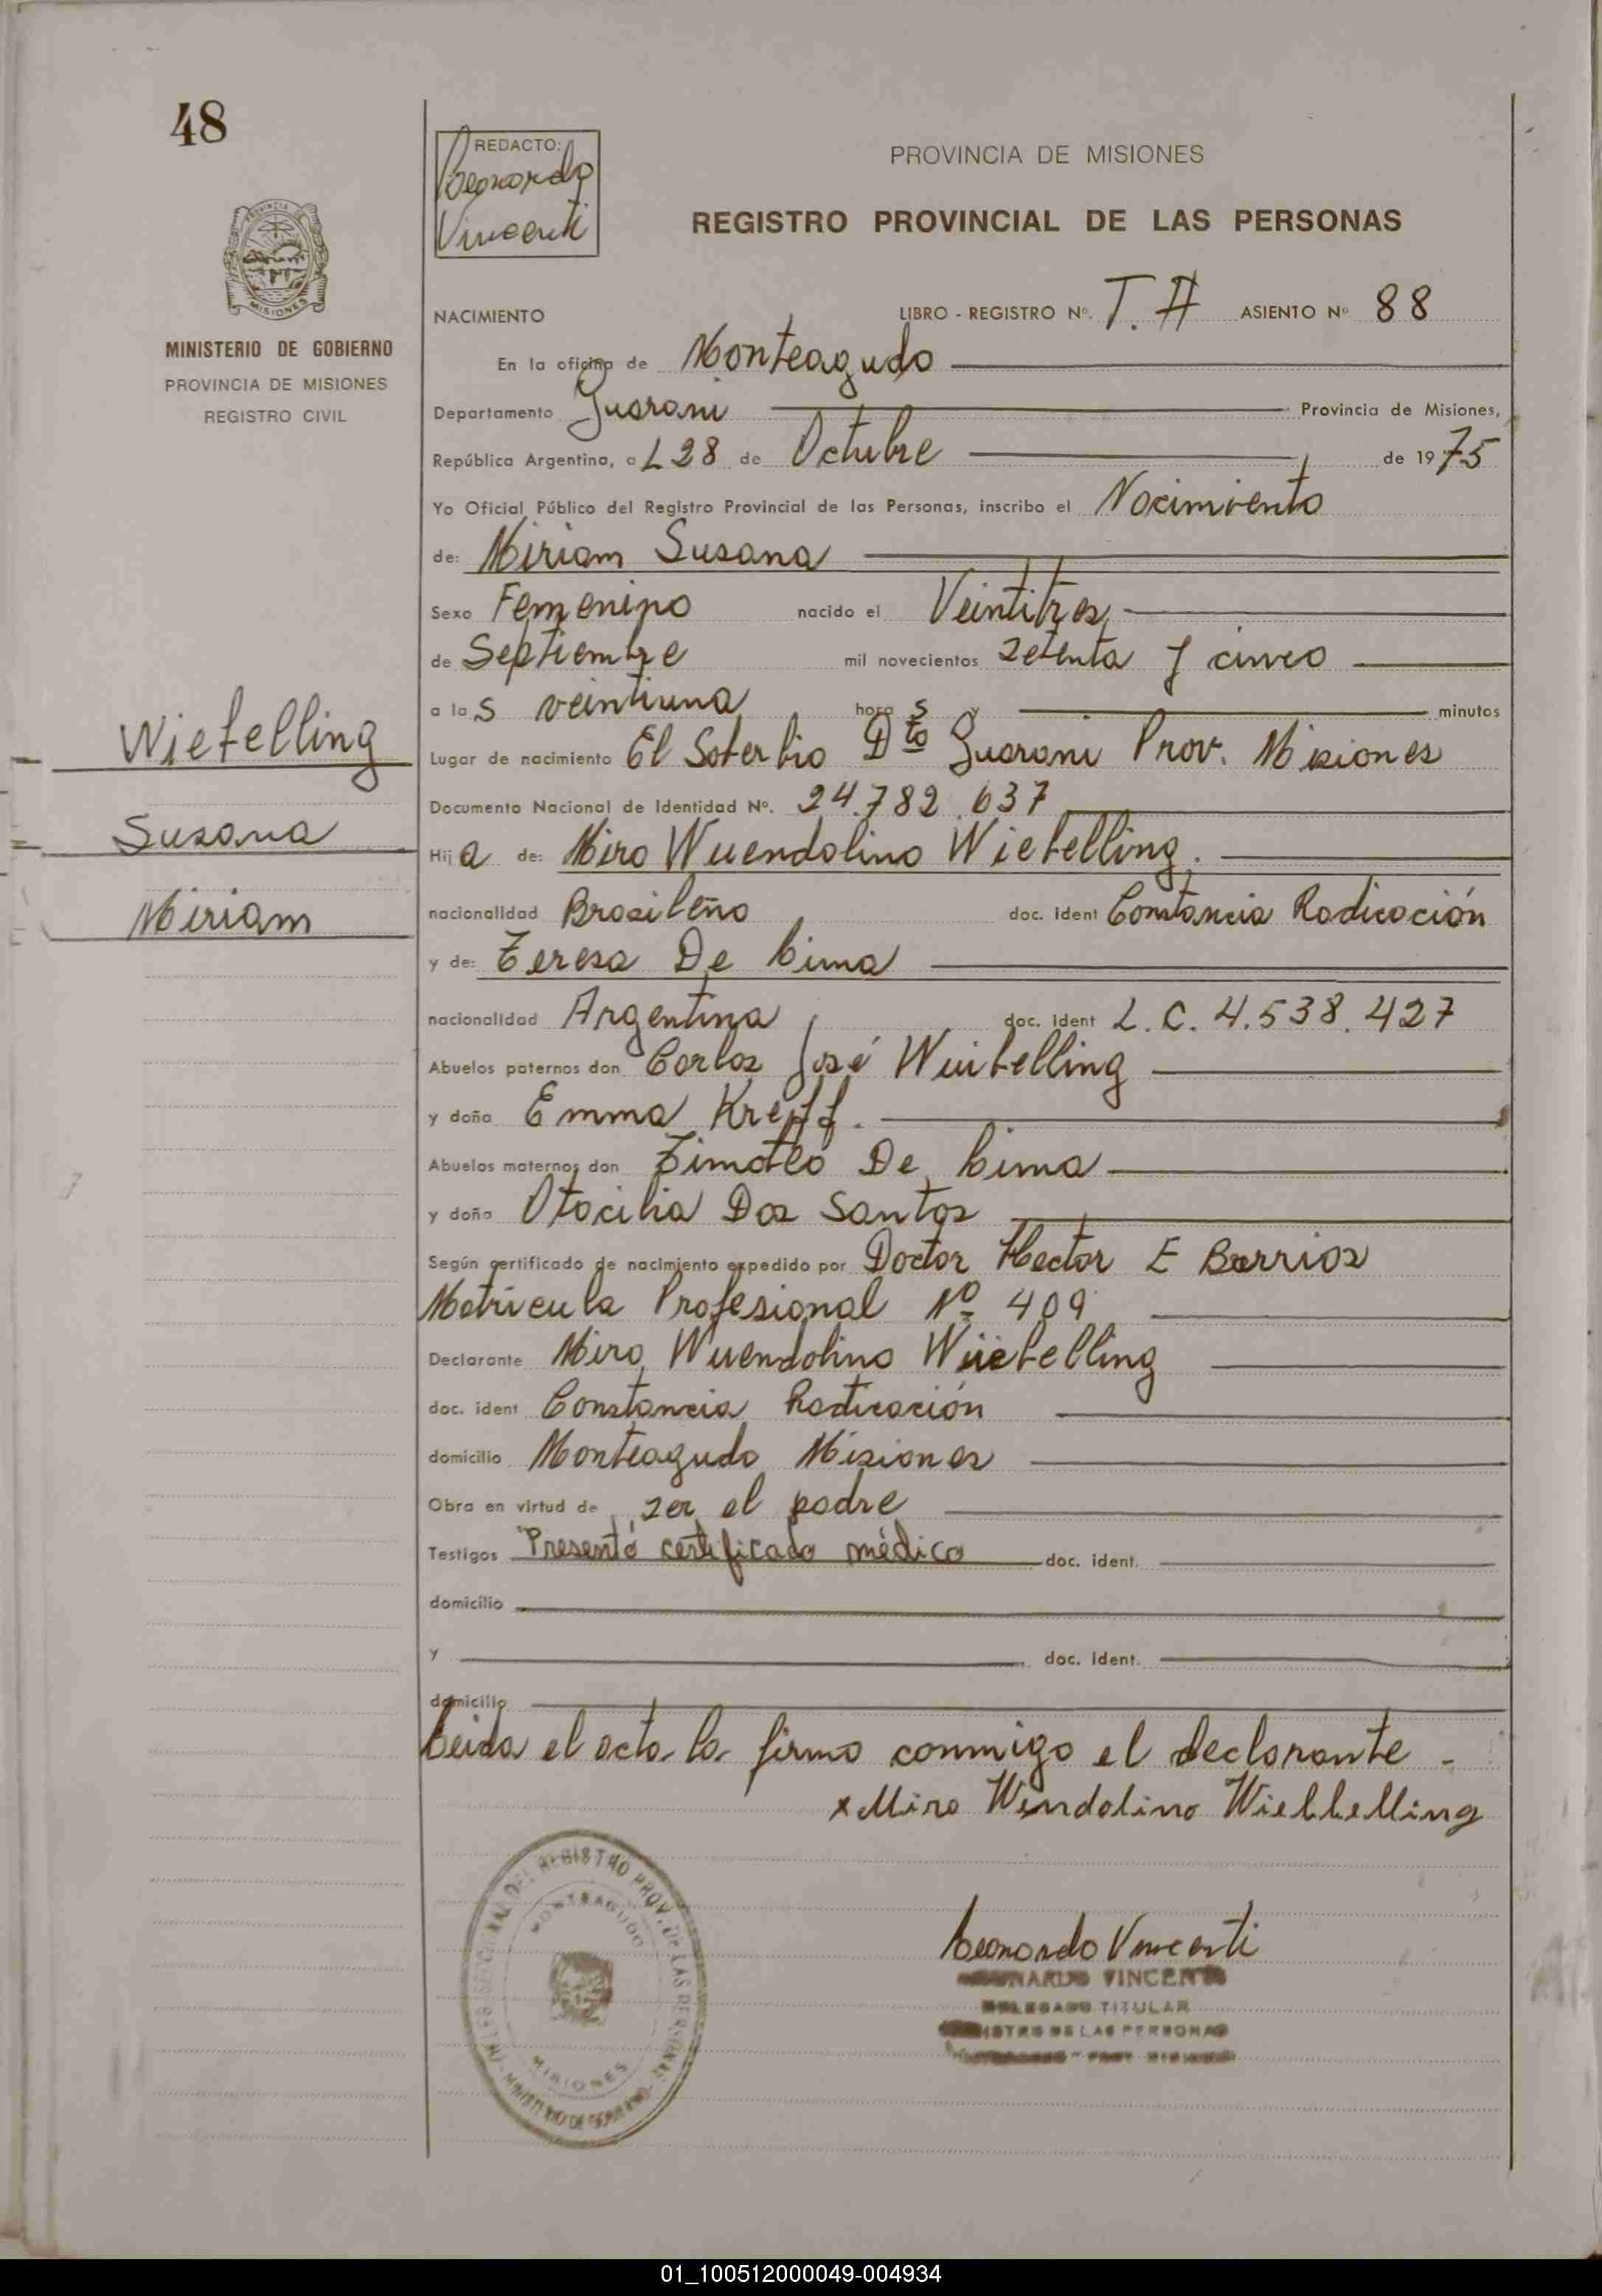 48
REDACTO:
Leonardo
Vincenti
PROVINCIA DE MISIONES
REGISTRO PROVINCIAL DE LAS PERSONAS
PROVINCIA DE
MISIONES
MINISTERIO DE GOBIERNO
PROVINCIA DE MISIONES
REGISTRO CIVIL
NACIMIENTO LIBRO - REGISTRO Nº. T. A ASIENTO Nº 88
En la oficina de Monteagudo
Departamento Guarani Provincia de Misiones,
República Argentina, a L 28 de Octubre de 1975
Yo Oficial Público del Registro Provincial de las Personas, inscribo el Nacimiento
de: Miriam Susana
Sexo Femenino nacido el Veintitres
de Septiembre mil novecientos setenta y cinco
a las veintiuna horas y minutos
Lugar de nacimiento El Soberbio Dto Guarani Prov. Misiones
Documento Nacional de Identidad Nº. 24.782.637
Hija de: Miro Wuendolino Wiebelling.
nacionalidad Brasileño doc. Ident Constancia Radicación
y de: Teresa De Lima
nacionalidad Argentina doc. Ident L. C. 4.538.427
Abuelos paternos don Carlos José Wuibelling
y doña Emma Kreff.
Abuelos maternos don Timoteo De Lima
y doña Otacilia Dos Santos
Según certificado de nacimiento expedido por Doctor Hector E Barrios
Matricula Profesional Nº 409
Declarante Miro Wuendolino Wiebelling
doc. ident Constancia Radicación
domicilio Monteagudo Misiones
Obra en virtud de ser el padre
Testigos Presentó certificado médico doc. ident.
domicilio
y doc. ident.
domicilio
Leida el acta la firma conmigo el declarante -
x Miro Wendolino Wiebbelling
Wiebelling
Susana
Miriam
MONTEAGUDO
MISIONES
Leonardo Vincenti
LEONARDO VINCENTI
DELEGADO TITULAR
REGISTRO DE LAS PERSONAS
01_100512000049-004934